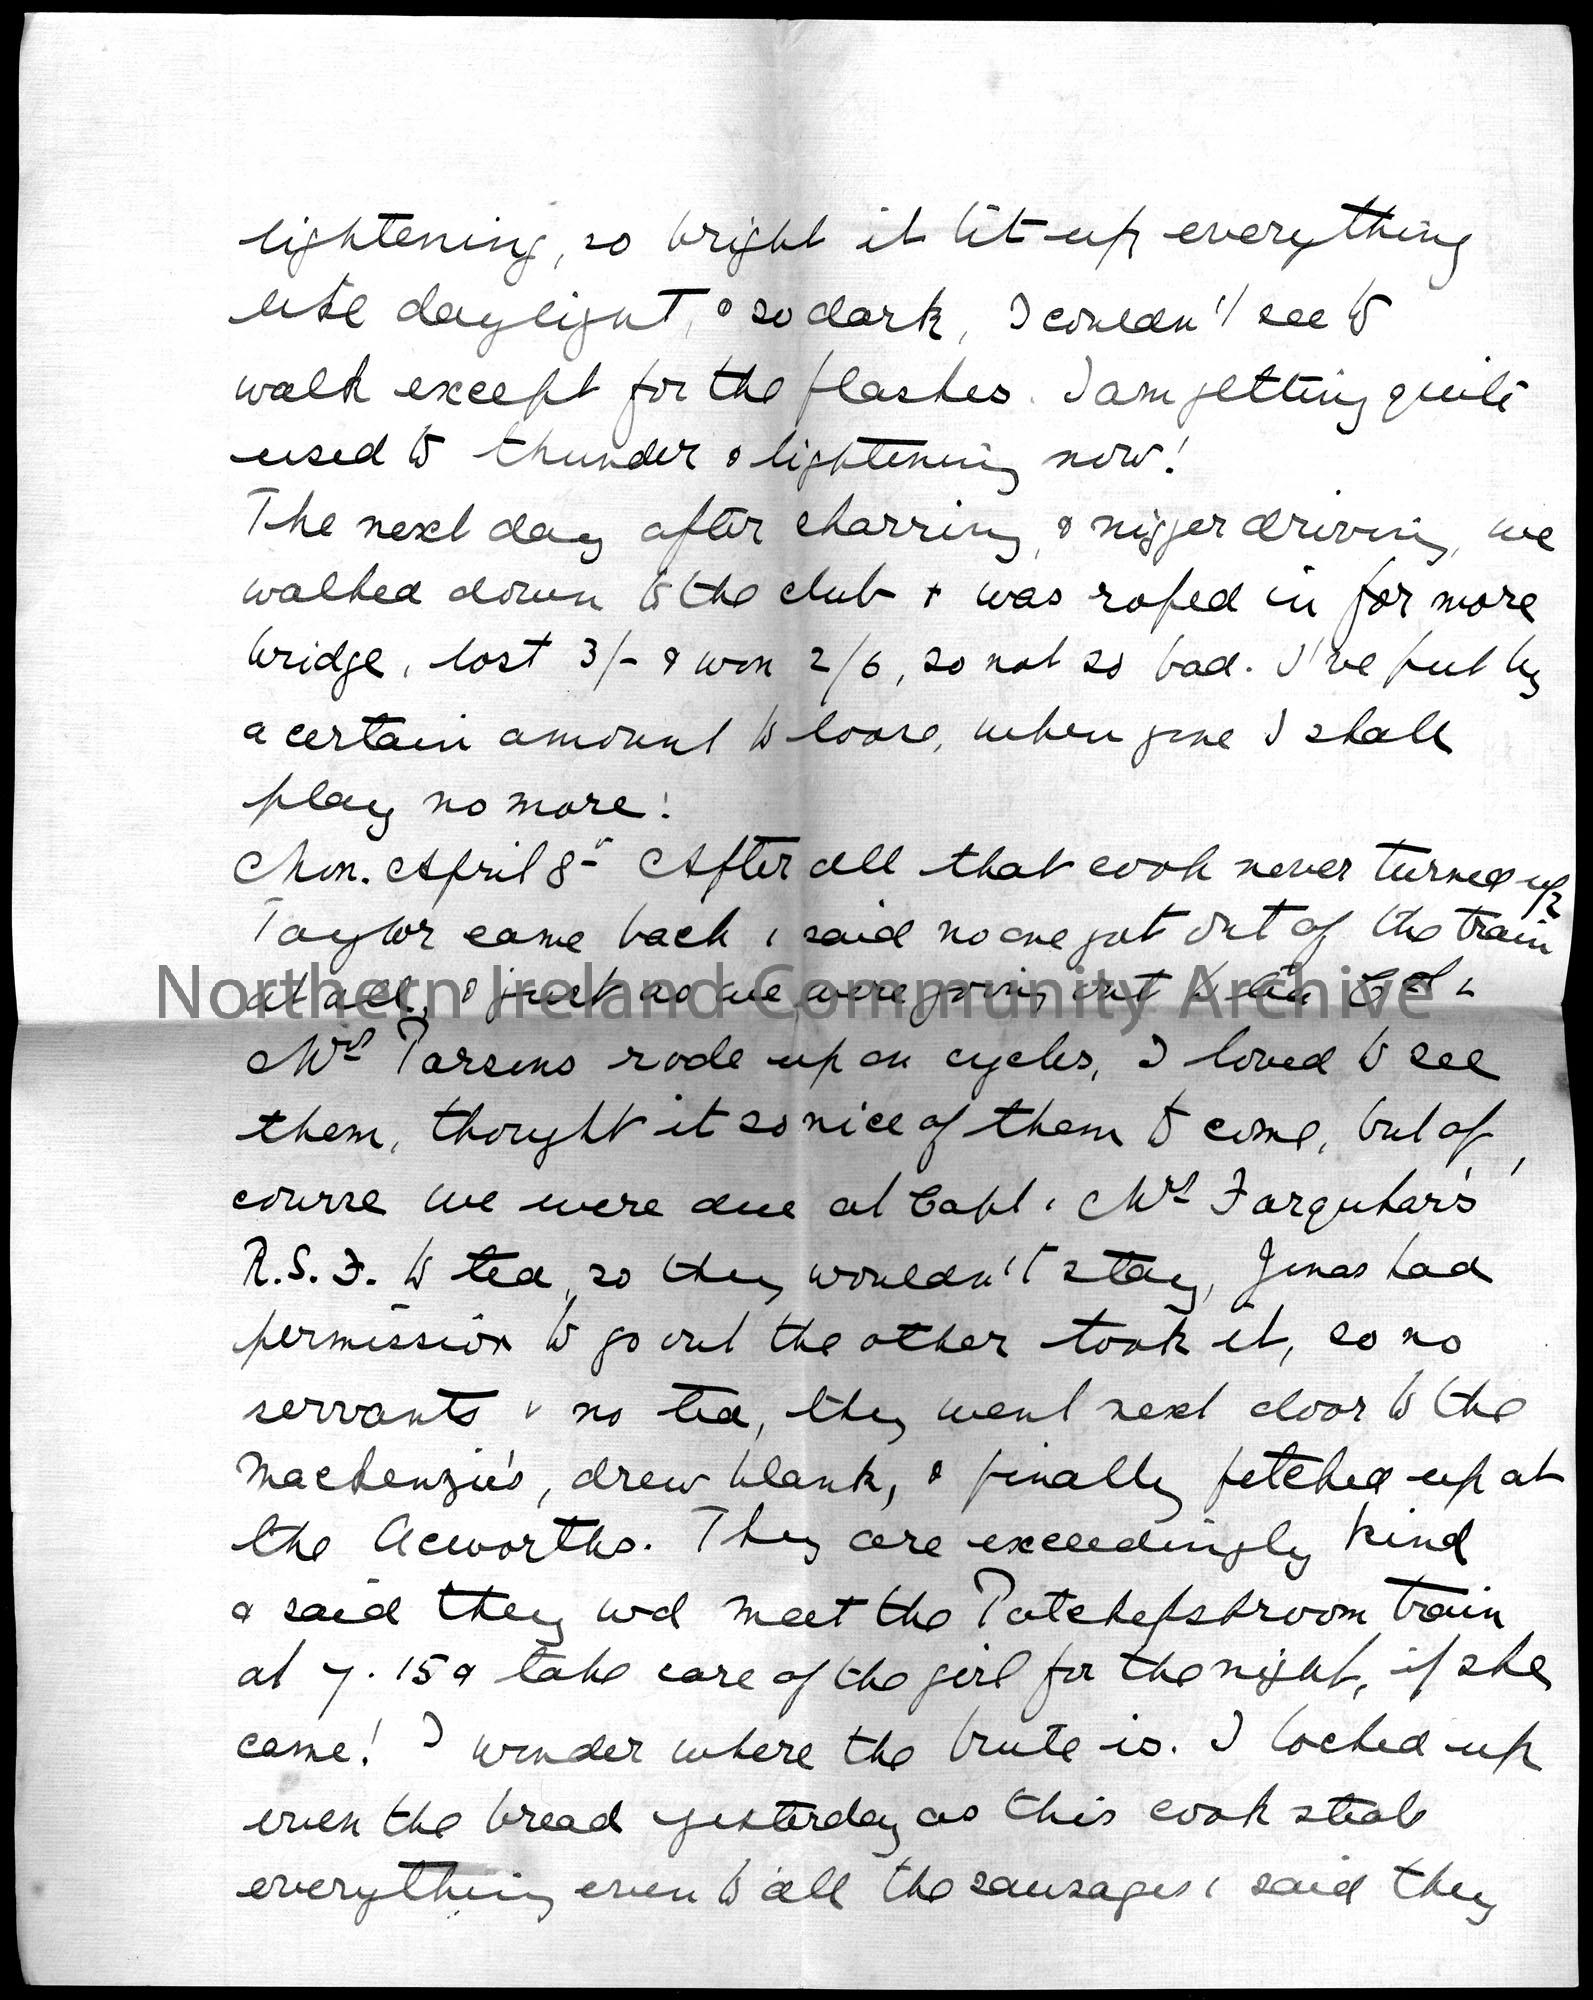 lightening, so bright it lit up everything
like daylight, & so dark, I couldn't see to
walk except for the flashes. I am getting quite
used to thunder & lightening now!
The next day after charring, & nigger driving, we
walked down to the club & was roped in for more
bridge, lost 3/- & won 2/6, so not so bad. I've put by
a certain amount to loose, when gone I shall
play no more!
Mon. April 8th After all that cook never turned up
Taylor came back & said no one got out of the train
at all, & just as we were going out to tea Col &
Northern Ireland Community Archive
Mrs Parsons rode up on cycles, I loved to see
them, thought it so nice of them to come, but of
course we were due at Capt & Mrs Farquhar's
R.S.F. to tea, so they wouldn't stay, Jonas had
permission to go out the other took it, so no
servants & no tea, they went next door to the
Mackenzie's, drew blank, & finally fetched up at
the Acworths. They are exceedingly kind
& said they wd meet the Potchefstroom train
at 7.15 & take care of the girl for the night, if she
came! I wonder where the brute is. I locked up
even the bread yesterday as this cook steals
everything even to all the sausages & said they